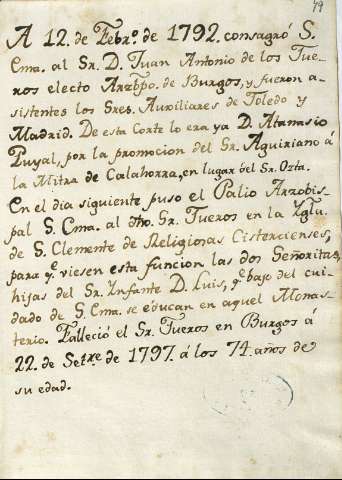 79
A 12. de Febr.º de 1792. consagró S.
Ema. al Sr. D. Juan Antonio de los Tue-
ros electo Arzbpo. de Burgos, y fueron a-
sistentes los Sres. Auxiliares de Toledo y
Madrid. De esta Corte lo era ya D. Atanasio
Puyal, por la promocion del Sr. Aguiriano á
la Mitra de Calahorra, en lugar del Sr. Ozta.
En el dia siguiente puso el Palio Arzobis-
pal S. Ema. al dho. Sr. Tueros en la Yglª.
de S. Clemente de Religiosas Cistercienses,
para q.e viesen esta funcion las dos Señoritas,
hijas del Sr. Infante D. Luis, q.e bajo del cui-
dado de S. Ema. se educan en aquel Monas-
terio. Falleció el Sr. Tueros en Burgos á
22. de Set.re de 1797. á los 74. años de
su edad.